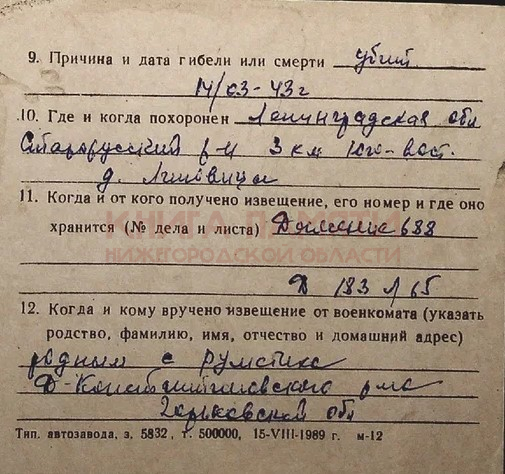 9. Причина и дата гибели или смерти убит
14/03-43г
10. Где и когда похоронен Ленинградская обл
Старорусский р-н 3 км юго-вост.
д.
11. Когда и от кого получено извещение, его номер и где оно
хранится (№ дела и листа) 688
КНИГА ПАМЯТИ
НИЖЕГОРОДСКОЙ ОБЛАСТИ
Д 183 л 65
12. Когда и кому вручено извещение от военкомата (указать
родство, фамилию, имя, отчество и домашний адрес)
родным с
Д-Константиновского р-на
Горьковской обл
Тип. автозавода, з. 5832, т. 500000, 15-VIII-1989 г. м-12